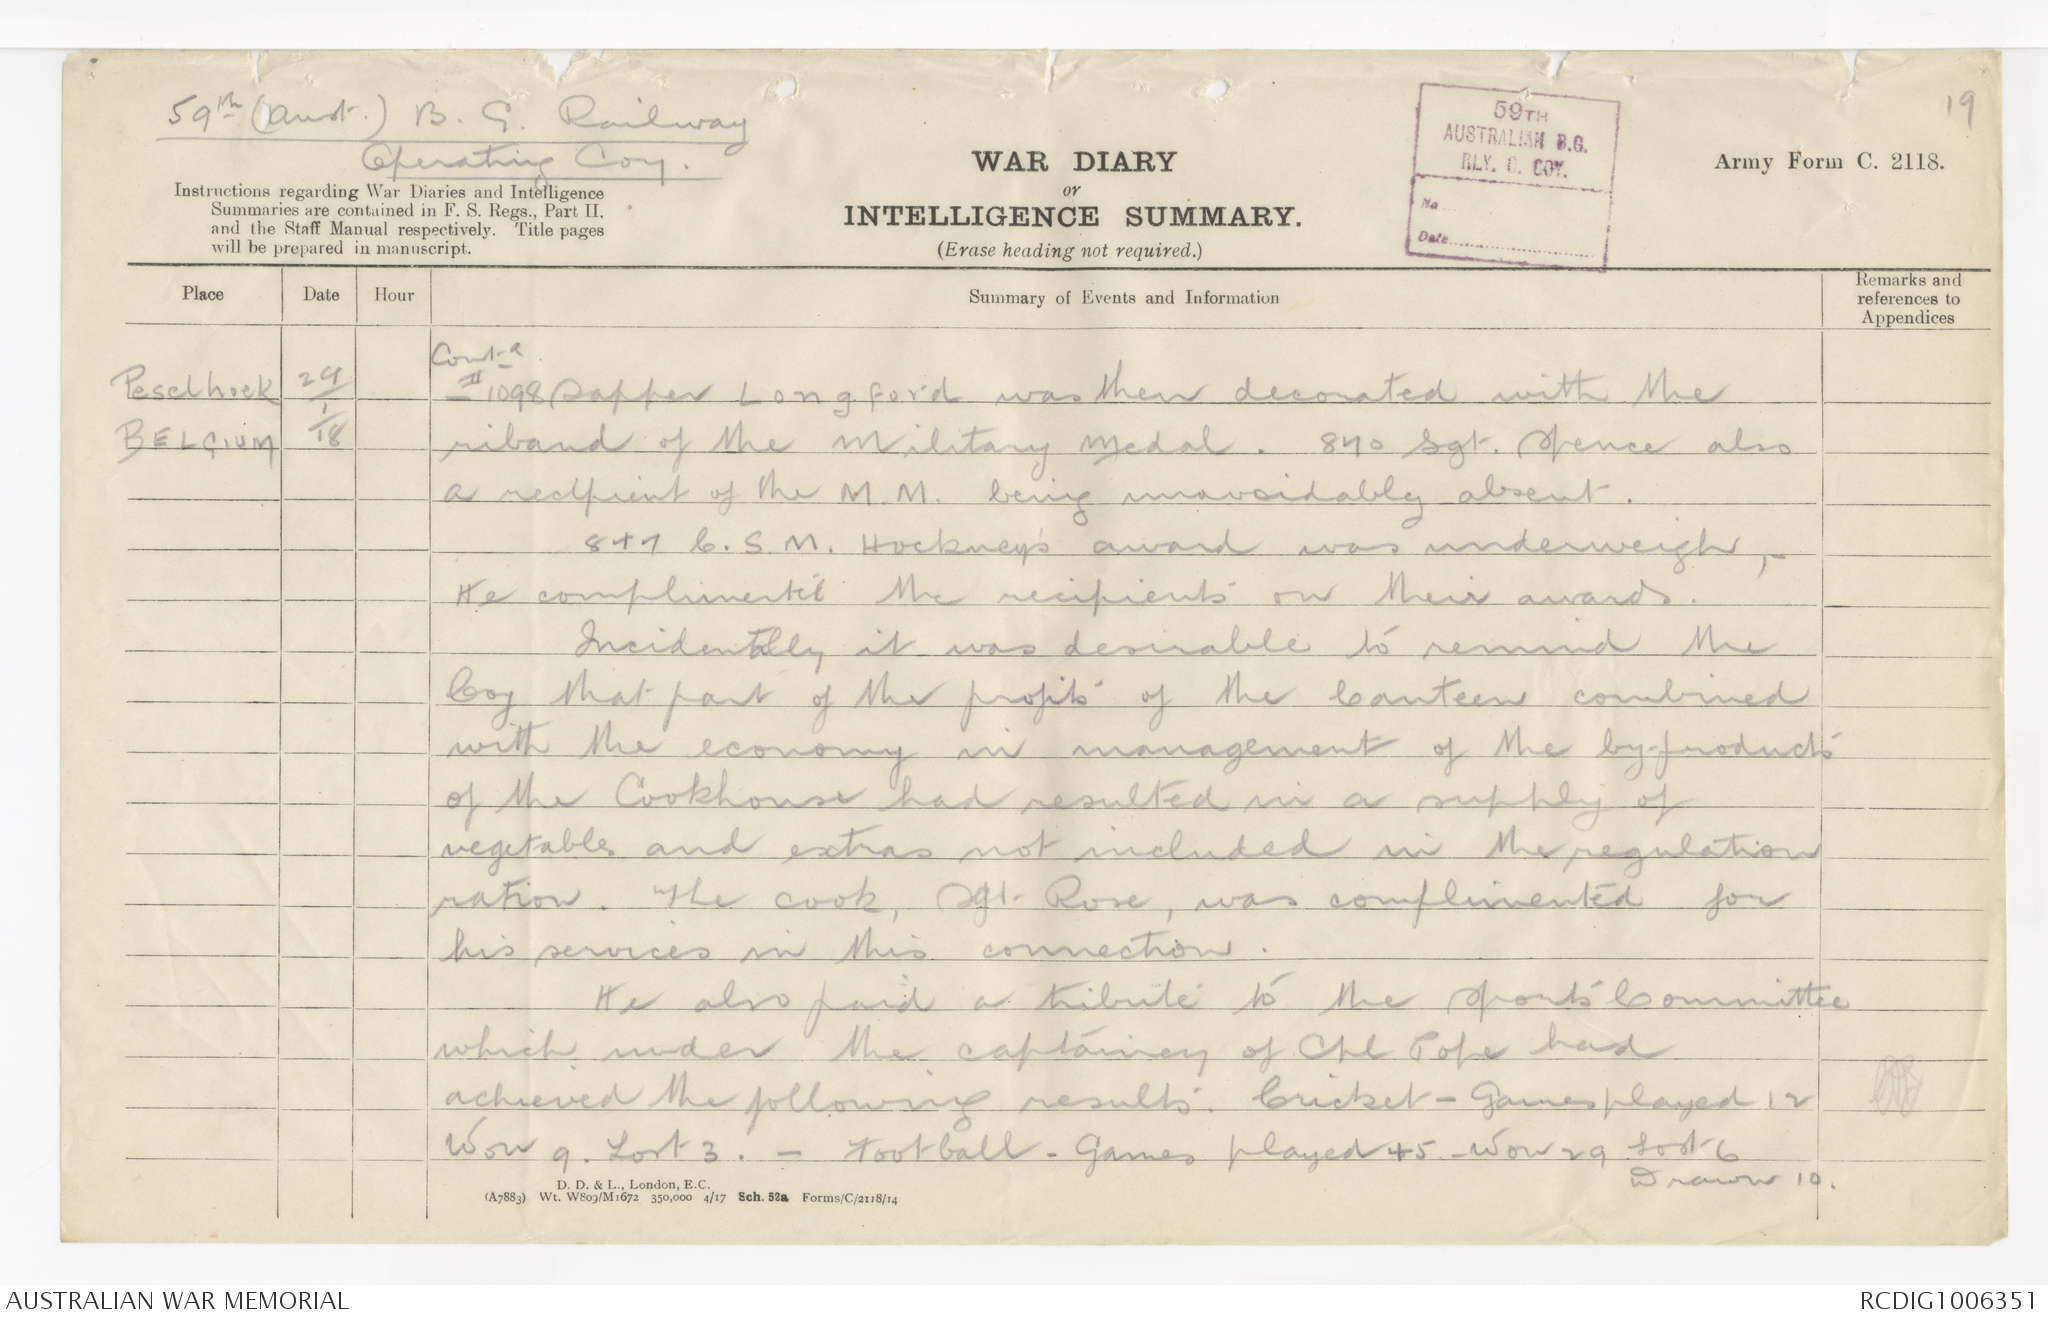 59th (Aust.) B. G. Railway
Operating Coy.
19
59TH
AUSTRALIAN B.G.
RLY. O. COY.
No
Date
Army Form C. 2118.
WAR DIARY
or
INTELLIGENCE SUMMARY.
(Erase heading not required.)
Instructions regarding War Diaries and Intelligence
Summaries are contained in F. S. Regs., Part II.
and the Staff Manual respectively. Title pages
will be prepared in manuscript.
Place Date Hour Summary of Events and Information Remarks and references to Appendices
Peselhoek
BELGIUM
29/1/18
Cont-d
II 1098 Sapper Longford was then decorated with the
riband of the Military Medal. 870 Sgt. Spence also
a recipient of the M.M. being unavoidably absent.
847 C.S.M. Hockney's award was underweigh,-
He complimented the recipients on their awards.
Incidentally it was desirable to remind the
Coy that part of the profits of the Canteen combined
with the economy in management of the by-products
of the Cookhouse had resulted in a supply of
vegetables and extras not included in the regulation
ration. The cook, Sgt. Rose, was complimented for
his services in this connection.
He also paid a tribute to the Sports Committee
which under the captaincy of Cpl Pope had
achieved the following results. Cricket - Games played 12
Won 9. Lost 3. - Football - Games played 45 - Won 29 Lost 6
Drawn 10.
D. D. & L., London, E.C.
(A7883) Wt. W809/M1672 350,000 4/17 Sch. 52a Forms/C/2118/14
AUSTRALIAN WAR MEMORIAL
RCDIG1006351